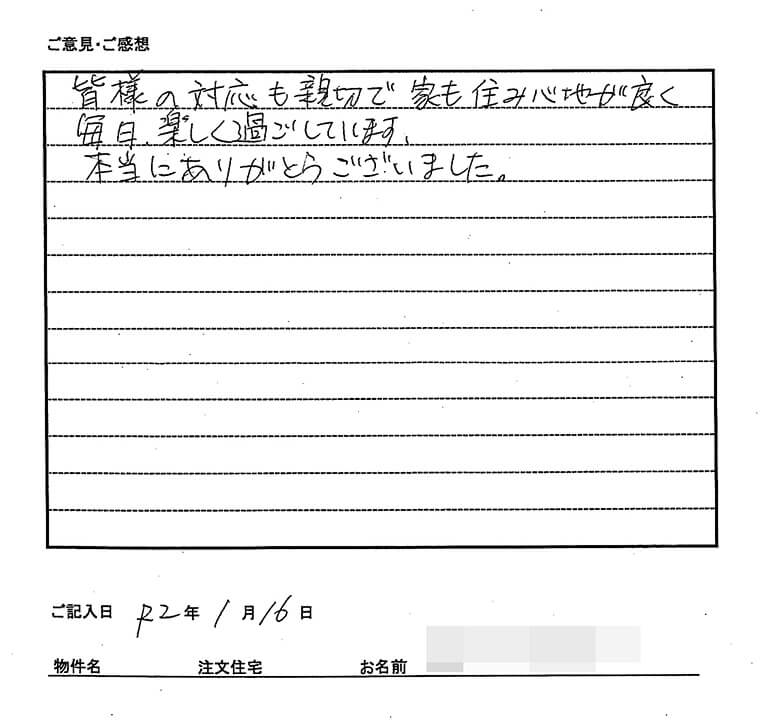 ご意見・ご感想
皆様の対応も親切で家も住み心地が良く
毎日、楽しく過ごしています。
本当にありがとうございました。
ご記入日 R2年 1月16日
物件名 注文住宅 お名前